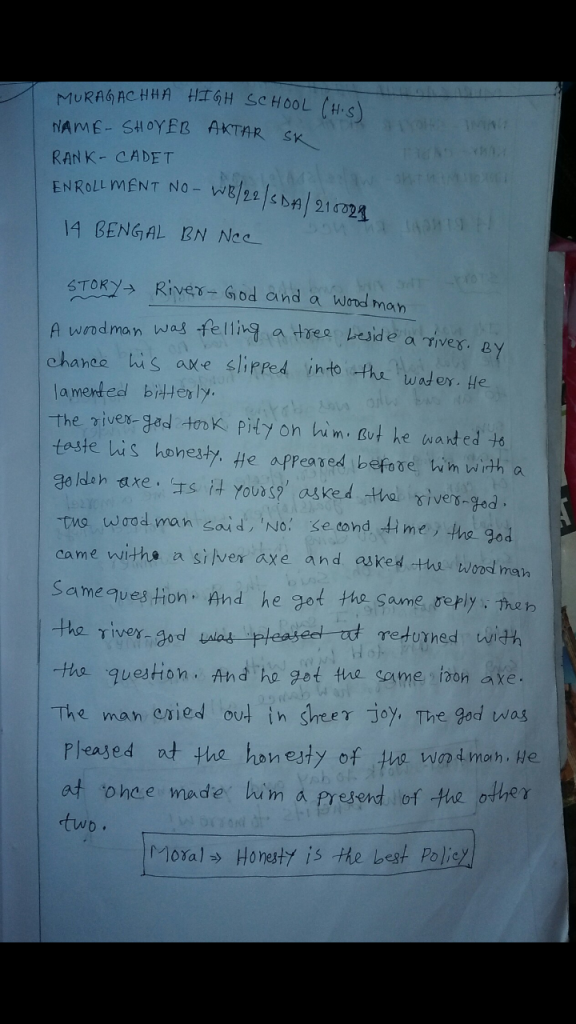 MURAGACHHA HIGH SCHOOL (H.S)
NAME- SHOYEB AKTAR SK
RANK- CADET
ENROLLMENT NO - WB/22/SDA/210021
14 BENGAL BN NCC
STORY → River-God and a woodman
A woodman was felling a tree beside a river. By
chance his axe slipped into the water. He
lamented bitterly.
The river-god took pity on him. But he wanted to
taste his honesty. He appeared before him with a
golden axe. 'Is it yours?' asked the river-god.
The woodman said, 'No.' second time, the god
came with a silver axe and asked the woodman
Same question. And he got the same reply. then
the river-god was pleased at returned with
the question. And he got the same iron axe.
The man cried out in sheer joy. The god was
Pleased at the honesty of the woodman. He
at once made him a present of the other
two.
Moral → Honesty is the best Policy